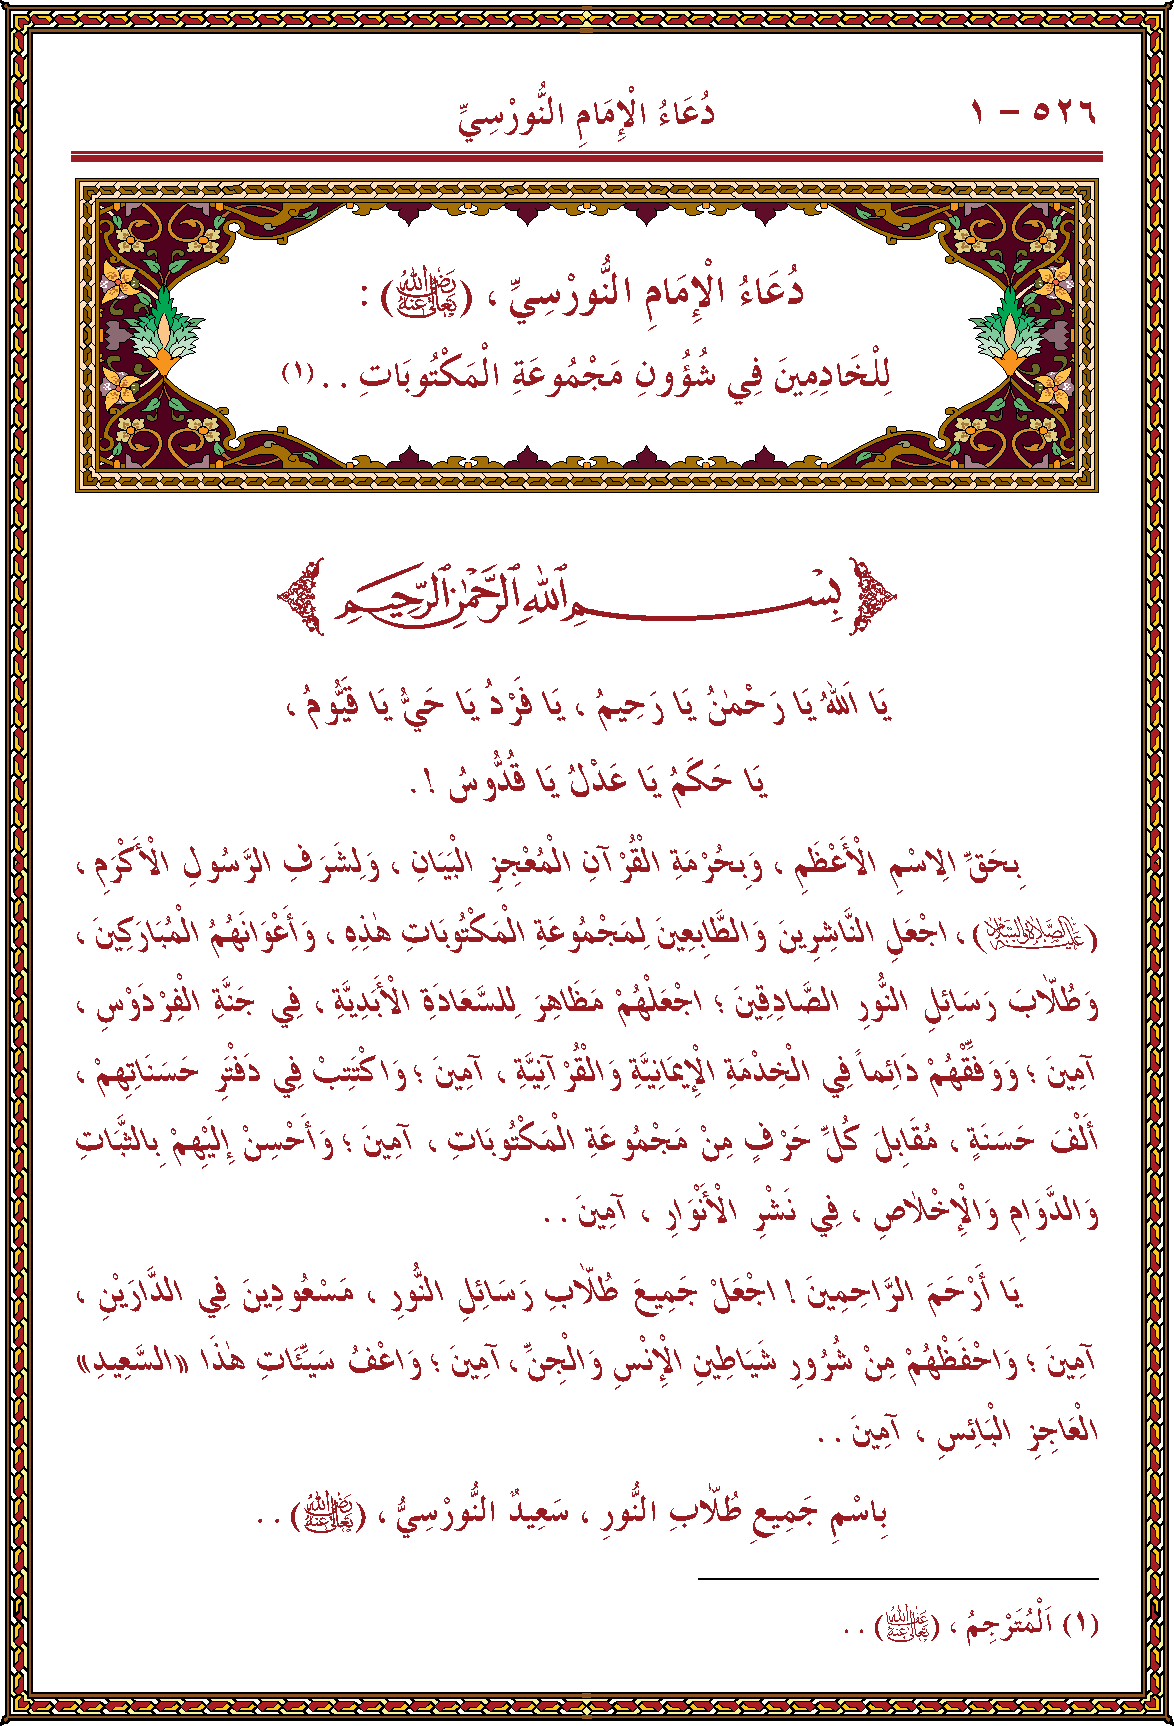 ٥٢٦ – ١
دُعَاءُ الْإِمَامِ النُّورْسِيِّ
دُعَاءُ الْإِمَامِ النُّورْسِيِّ ، (رَضِيَ اللهُ تَعَالَى عَنْهُ) :
لِلْخَادِمِينَ فِي شُؤُونِ مَجْمُوعَةِ الْمَكْتُوبَاتِ . . (١)
بِسْمِ اللهِ الرَّحْمٰنِ الرَّحِيمِ
يَا اَللهُ يَا رَحْمٰنُ يَا رَحِيمُ ، يَا فَرْدُ يَا حَيُّ يَا قَيُّومُ ،
يَا حَكَمُ يَا عَدْلُ يَا قُدُّوسُ ! .
بِحَقِّ الِاسْمِ الْأَعْظَمِ ، وَبِحُرْمَةِ الْقُرْآنِ الْمُعْجِزِ الْبَيَانِ ، وَلِشَرَفِ الرَّسُولِ الْأَكْرَمِ ،
(عَلَيْهِ الصَّلَاةُ وَالسَّلَامُ) ، اجْعَلِ النَّاشِرِينَ وَالطَّابِعِينَ لِمَجْمُوعَةِ الْمَكْتُوبَاتِ هٰذِهِ ، وَأَعْوَانَهُمُ الْمُبَارَكِينَ ،
وَطُلَّابَ رَسَائِلِ النُّورِ الصَّادِقِينَ ؛ اجْعَلْهُمْ مَظَاهِرَ لِلسَّعَادَةِ الْأَبَدِيَّةِ ، فِي جَنَّةِ الْفِرْدَوْسِ ،
آمِينَ ؛ وَوَفِّقْهُمْ دَائِماً فِي الْخِدْمَةِ الْإِيمَانِيَّةِ وَالْقُرْآنِيَّةِ ، آمِينَ ؛ وَاكْتِبْ فِي دَفْتَرِ حَسَنَاتِهِمْ ،
أَلْفَ حَسَنَةٍ ، مُقَابِلَ كُلِّ حَرْفٍ مِنْ مَجْمُوعَةِ الْمَكْتُوبَاتِ ، آمِينَ ؛ وَأَحْسِنْ إِلَيْهِمْ بِالثَّبَاتِ
وَالدَّوَامِ وَالْإِخْلَاصِ ، فِي نَشْرِ الْأَنْوَارِ ، آمِينَ . .
يَا أَرْحَمَ الرَّاحِمِينَ ! اجْعَلْ جَمِيعَ طُلَّابِ رَسَائِلِ النُّورِ ، مَسْعُودِينَ فِي الدَّارَيْنِ ،
آمِينَ ؛ وَاحْفَظْهُمْ مِنْ شُرُورِ شَيَاطِينِ الْإِنْسِ وَالْجِنِّ ، آمِينَ ؛ وَاعْفُ سَيِّئَاتِ هٰذَا «السَّعِيدِ»
الْعَاجِزِ الْبَائِسِ ، آمِينَ . .
بِاسْمِ جَمِيعِ طُلَّابِ النُّورِ ، سَعِيدٌ النُّورْسِيُّ ، (رَضِيَ اللهُ تَعَالَى عَنْهُ) . .
(١) اَلْمُتَرْجِمُ ، (عَفَا اللهُ تَعَالَى عَنْهُ) . .